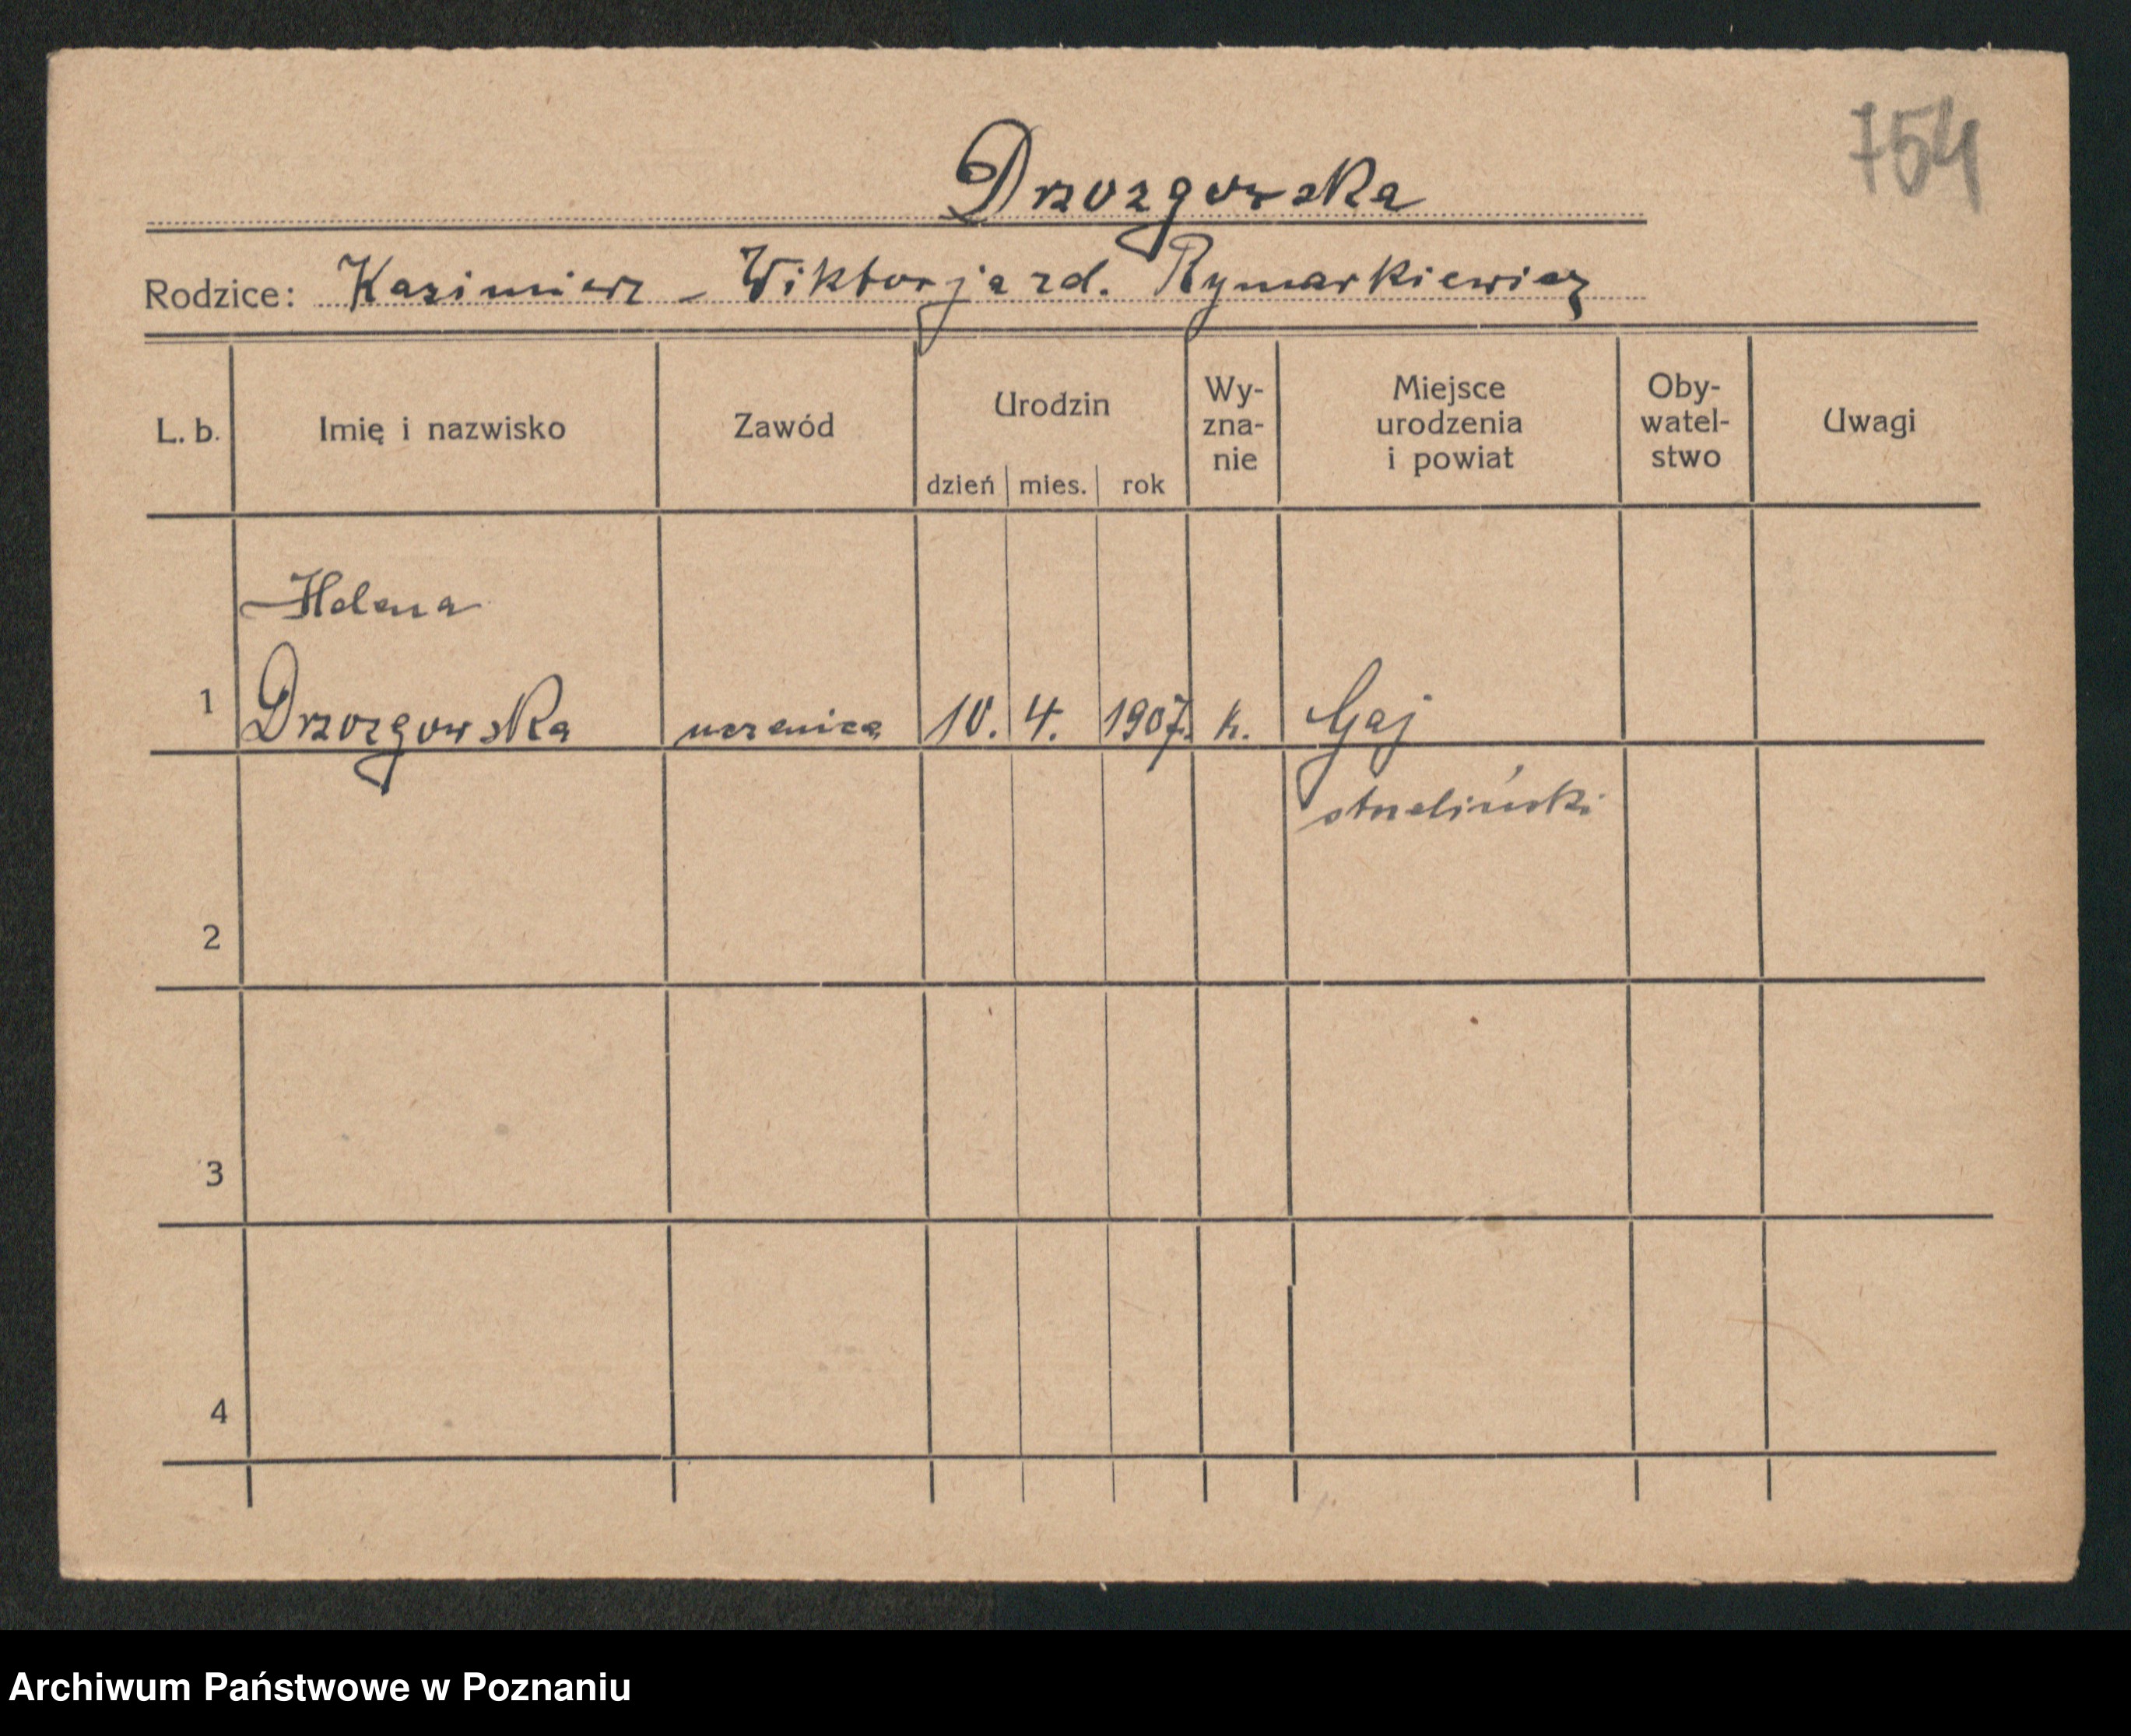 754
Drzozgowska
Rodzice: Kazimierz - Wiktorja zd. Rymarkiewicz
L. b. Imię i nazwisko Zawód Urodzin dzień mies. rok Wy-zna-nie Miejsce urodzenia i powiat Oby-watel-stwo Uwagi
Helena
1 Drzozgowska uczenica 10. 4. 1907. k. Gaj
strzeliński
2
3
4
Archiwum Państwowe w Poznaniu